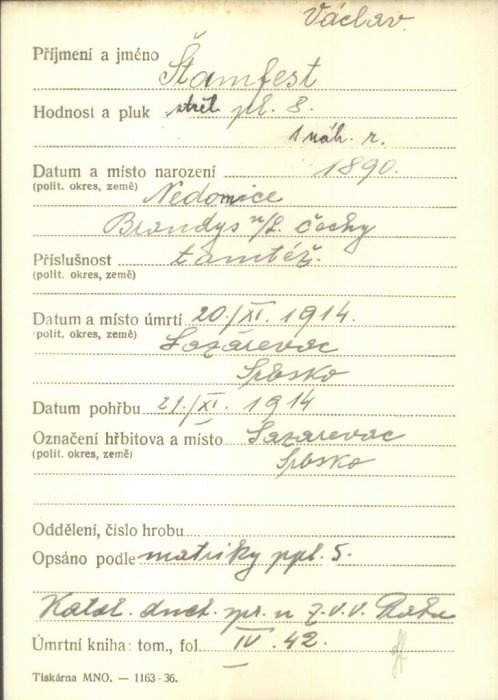 Václav.
Příjmení a jméno Štamfest
Hodnost a pluk střel. pl. 8.
1 náh. r.
Datum a místo narození 1890.
(polit. okres, země) Nedomice
Brandys n/L. Čechy
Příslušnost tamtéž.
(polit. okres, země)
Datum a místo úmrtí 20./XI. 1914.
polit. okres, země) Lazárevac
Srbsko
Datum pohřbu 21./XI. 1914
Označení hřbitova a místo Lazarevac
(polit. okres, země) Srbsko
Oddělení, číslo hrobu
Opsáno podle matriky ppl. 5.
Katol. duch. spr. u Z.V.V. Praha
Úmrtní kniha: tom., fol. IV. 42.
Tiskárna MNO. — 1163-36.